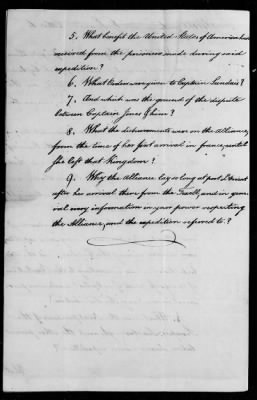 5. What benefit the United States of America have
received from the prisoners made during said
expedition?
6. What orders were given to Captain Landais?
7. And what was the ground of the dispute
between Captain Jones & him?
8. What the disbursements were on the Alliance,
from the time of her first arrival in france, until
She left that Kingdom?
9. Why the Alliance lay so long at port L'Orient
after her arrival there from the Texel, and in gene-
ral every information in your power respecting
the Alliance, and the expedition referred to?